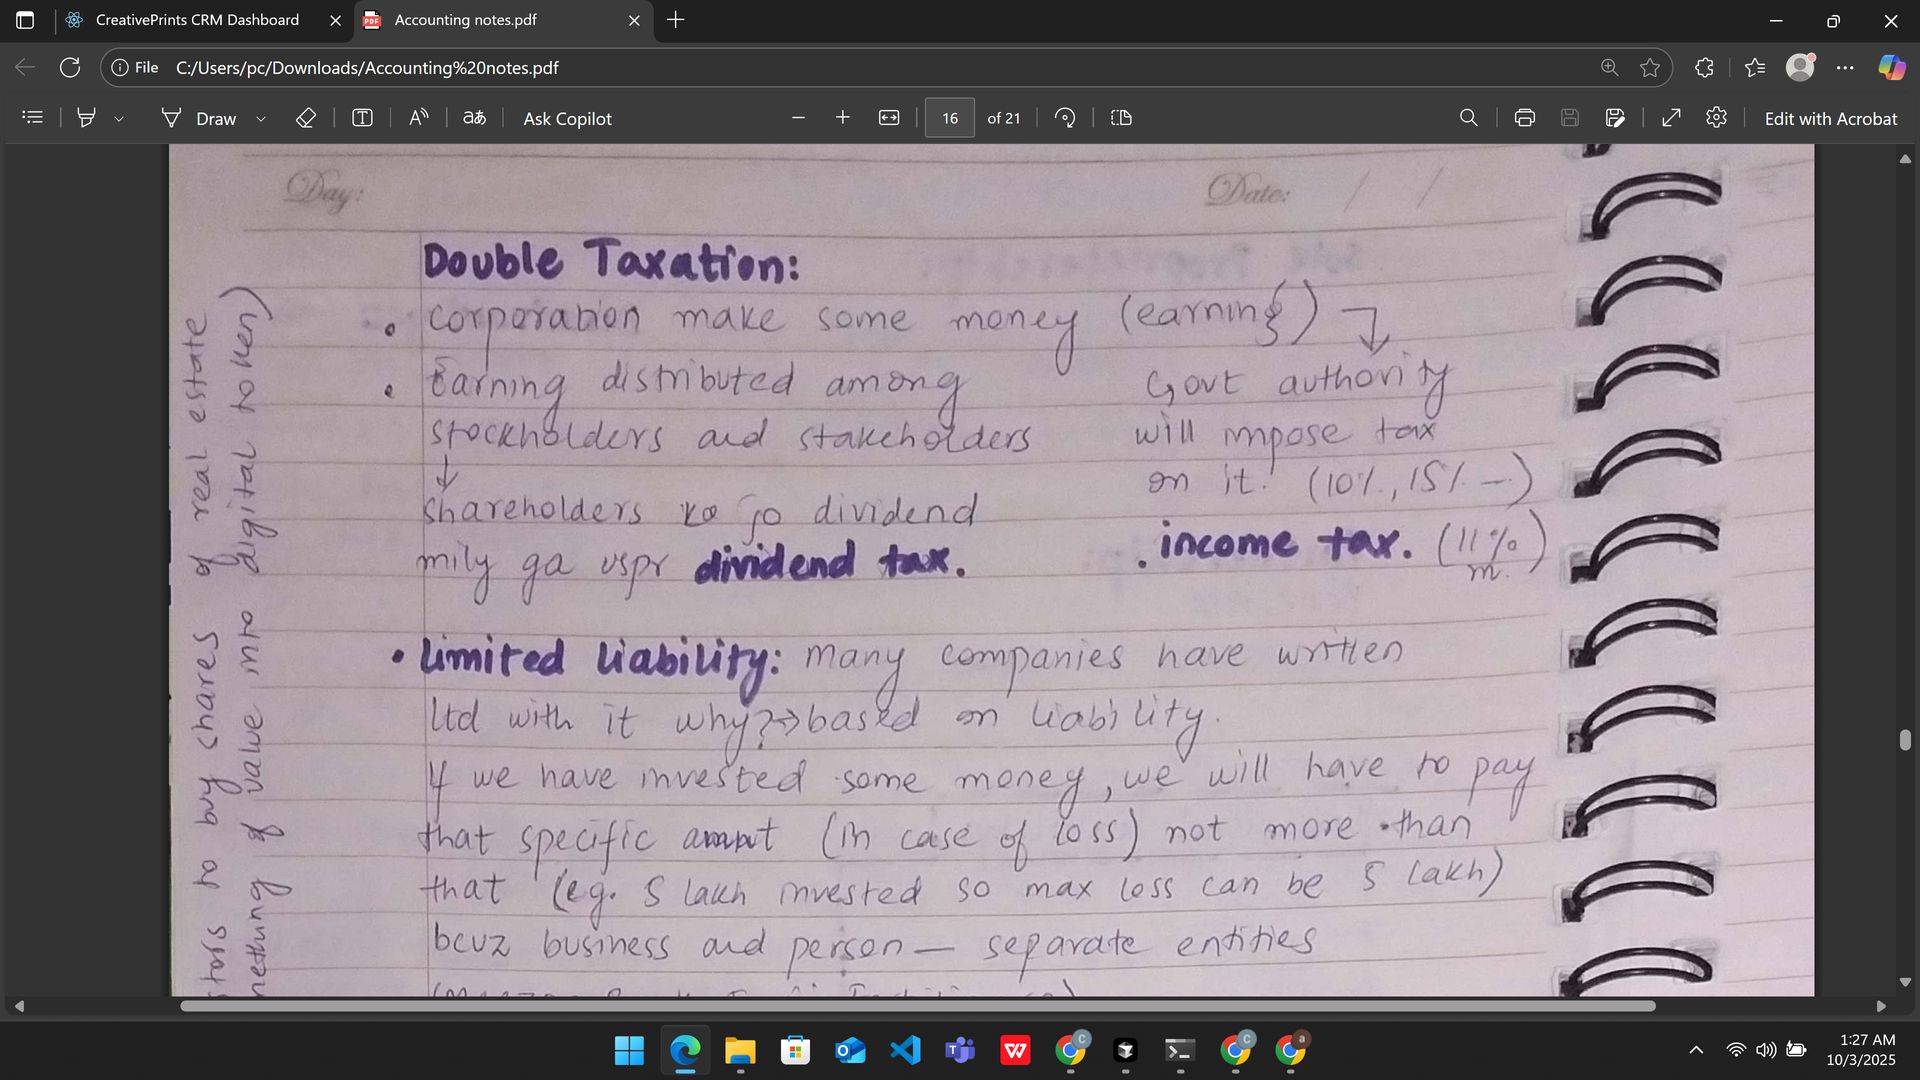 CreativePrints CRM Dashboard
Accounting notes.pdf
File
C:/Users/pc/Downloads/Accounting%20notes.pdf
Draw
Ask Copilot
16
of 21
Edit with Acrobat
Day:
Date: / /
Double Taxation:
• corporation make some money (earning)
• Earning distributed among
stockholders and stakeholders
shareholders ko jo dividend
mily ga uspr dividend tax.
Govt authority
will impose tax
on it. (10%, 15% —)
. income tax. (11%
m.)
• Limited Liability: many companies have written
ltd with it why?→ based on liability.
If we have invested some money, we will have to pay
that specific amount (in case of loss) not more than
that (eg. 5 lakh invested so max loss can be 5 lakh)
bcuz business and person — separate entities
to buy shares of real estate
of value into digital token)
1:27 AM
10/3/2025